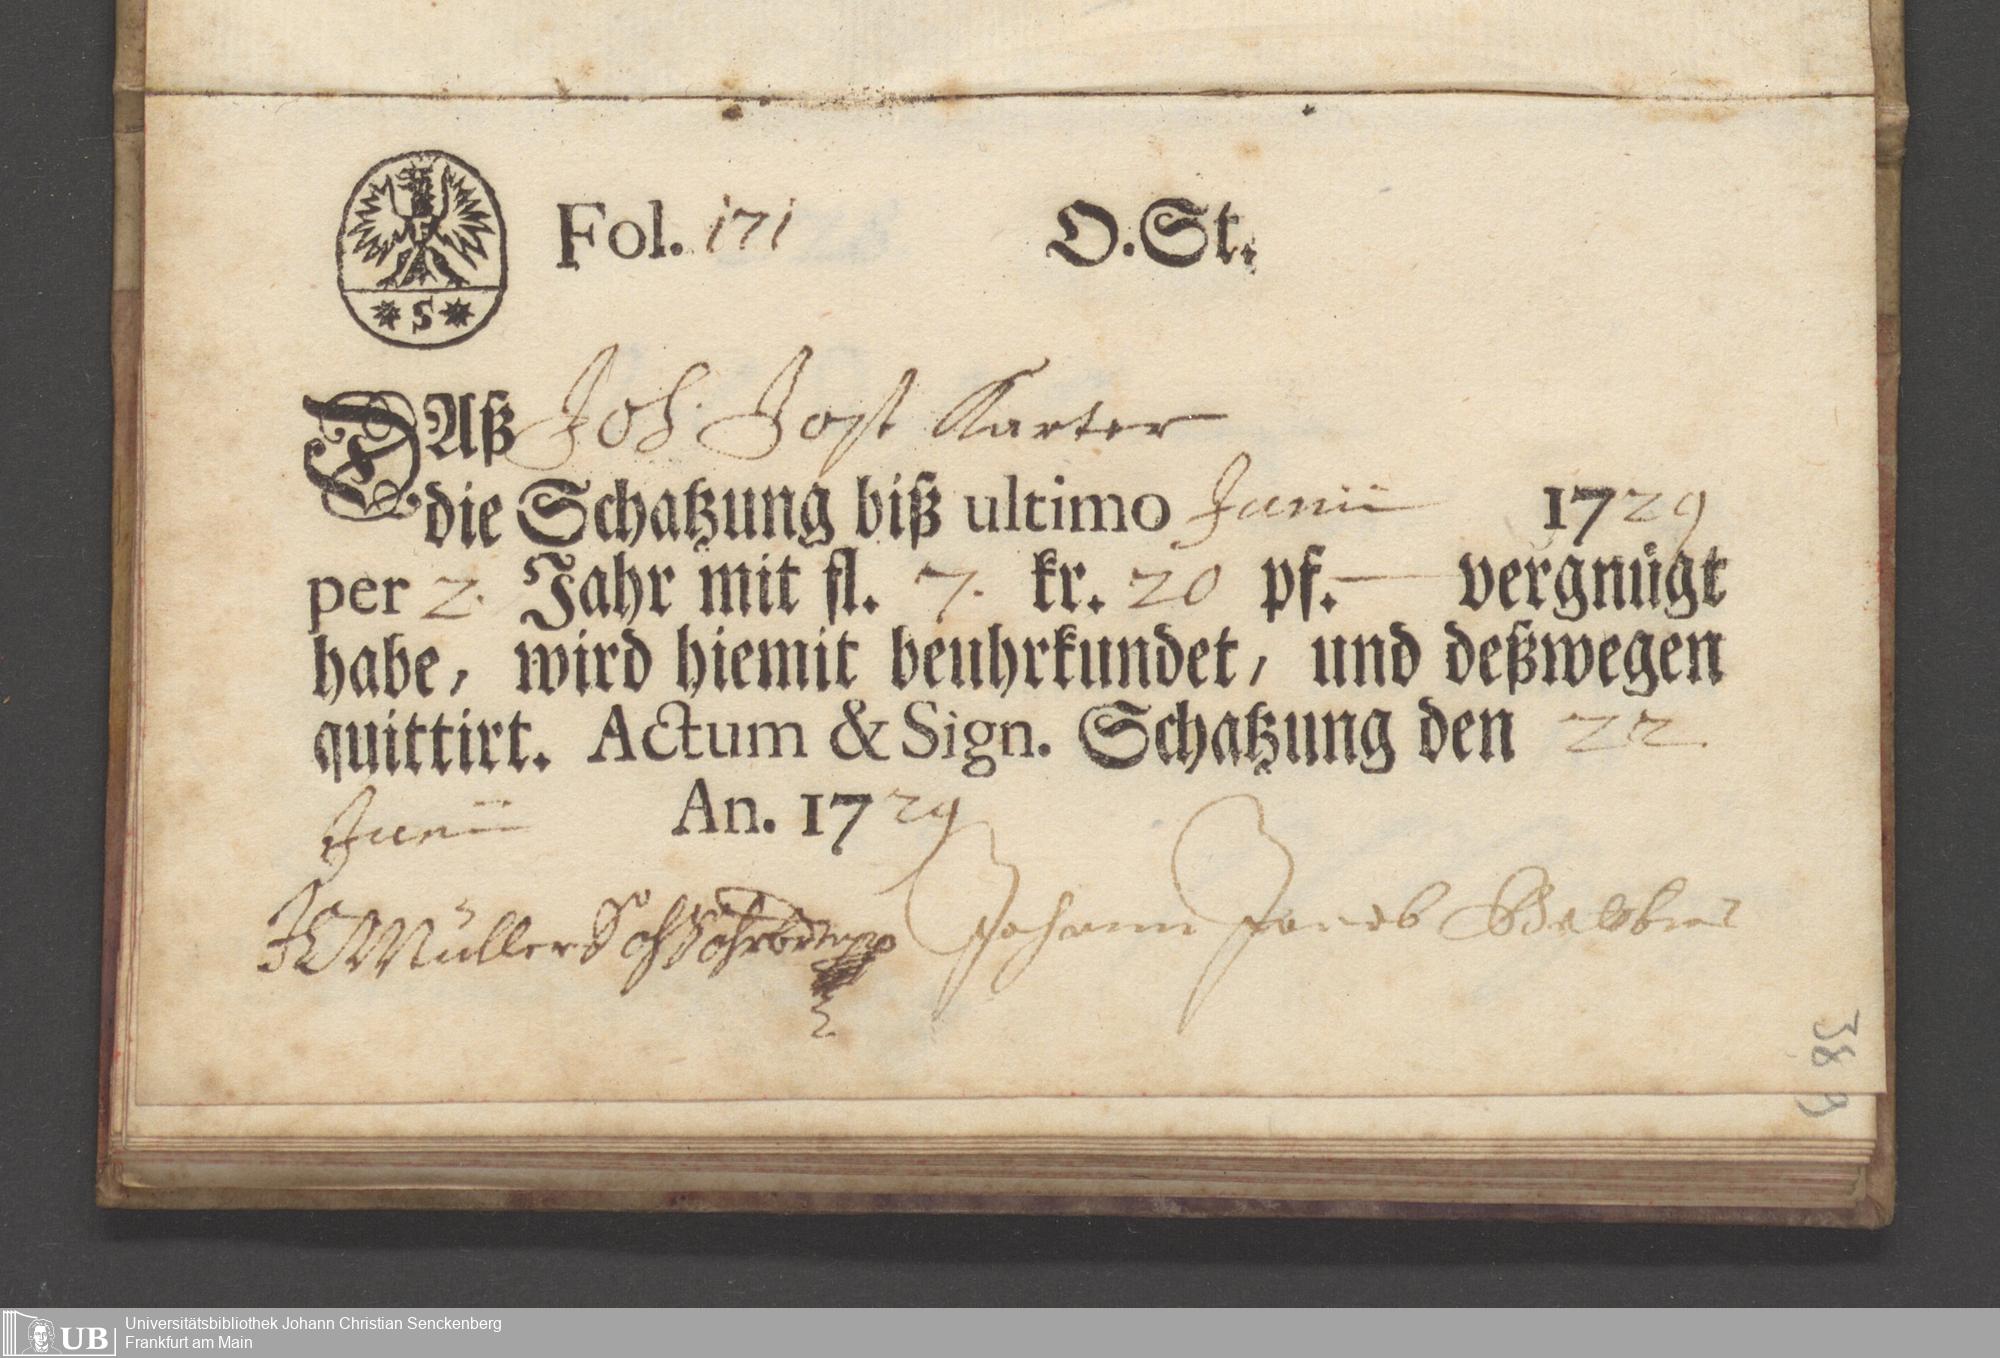 Fol. 171 O.St.
* S *
DAß Joh. Jost Karter
die Schatzung biß ultimo Junii 1729
per 2. Jahr mit fl. 7. kr. 20 pf. — vergnügt
habe, wird hiemit beuhrkundet, und deßwegen
quittirt. Actum & Sign. Schatzung den 22
Junii An. 1729
Müller Johann Jacob
389
UB
Universitätsbibliothek Johann Christian Senckenberg
Frankfurt am Main